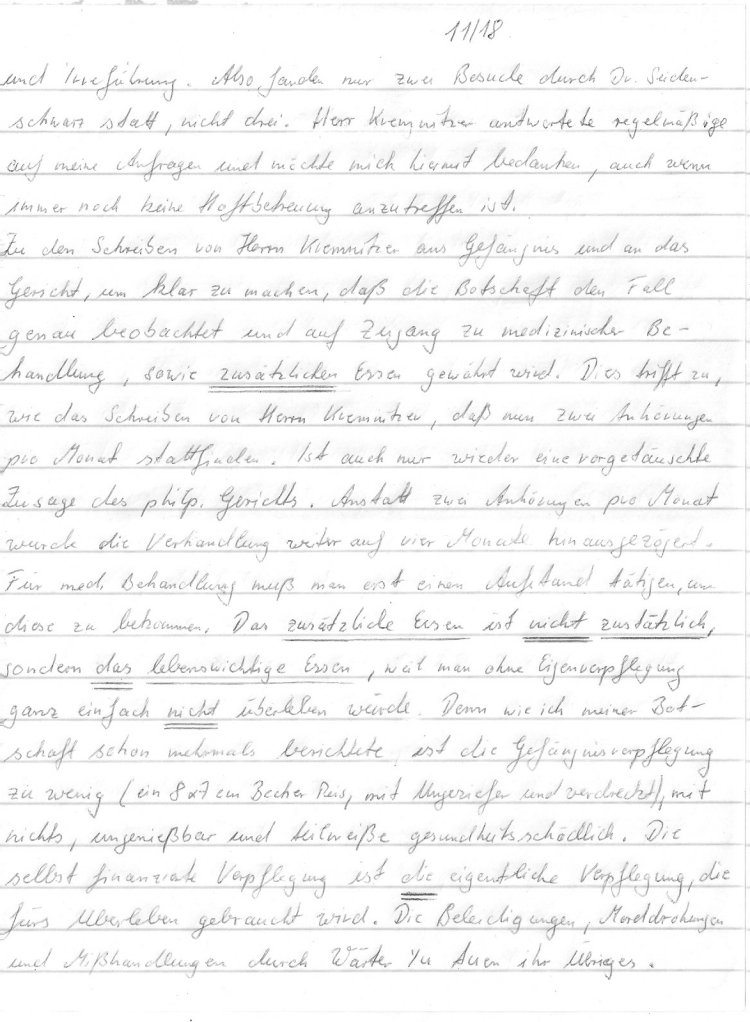 11/18
und Irreführung. Also fanden nur zwei Besuche durch Dr. Seiden-
schwarz statt, nicht drei. Herr Kremnitzer antwortete regelmäßige
auf meine Anfragen und möchte mich hiermit bedanken, auch wenn
immer noch keine Haftbetreuung anzutreffen ist.
Zu den Schreiben von Herrn Kremnitzer ans Gefängnis und an das
Gericht, um klar zu machen, daß die Botschaft den Fall
genau beobachtet und auf Zugang zu medizinischer Be-
handlung, sowie zusätzlichen Essen gewährt wird. Dies trifft zu,
wie das Schreiben von Herrn Kremnitzer, daß nun zwei Anhörungen
pro Monat stattfinden. Ist auch nur wieder eine vorgetäuschte
Zusage des philp. Gerichts. Anstatt zwei Anhörungen pro Monat
wurde die Verhandlung weiter auf vier Monate hinausgezögert.
Für med. Behandlung muß man erst einen Aufstand tätigen, um
diese zu bekommen. Das zusätzliche Essen ist nicht zustätzlich,
sondern das lebenswichtige Essen, weil man ohne Eigenverpflegung
ganz einfach nicht überleben würde. Denn wie ich meiner Bot-
schaft schon mehrmals berichtete ist die Gefängnisverpflegung
zu wenig (ein 8x7 cm Becher Reis, mit Ungeziefer und verdreckt), mit
nichts, ungenießbar und teilweiße gesundheitsschädlich. Die
selbst finanziate Verpflegung ist die eigentliche Verpflegung, die
fürs Überleben gebraucht wird. Die Beleidigungen, Morddrohungen
und Mißhandlungen durch Wärter Yu tuen ihr Übriges.